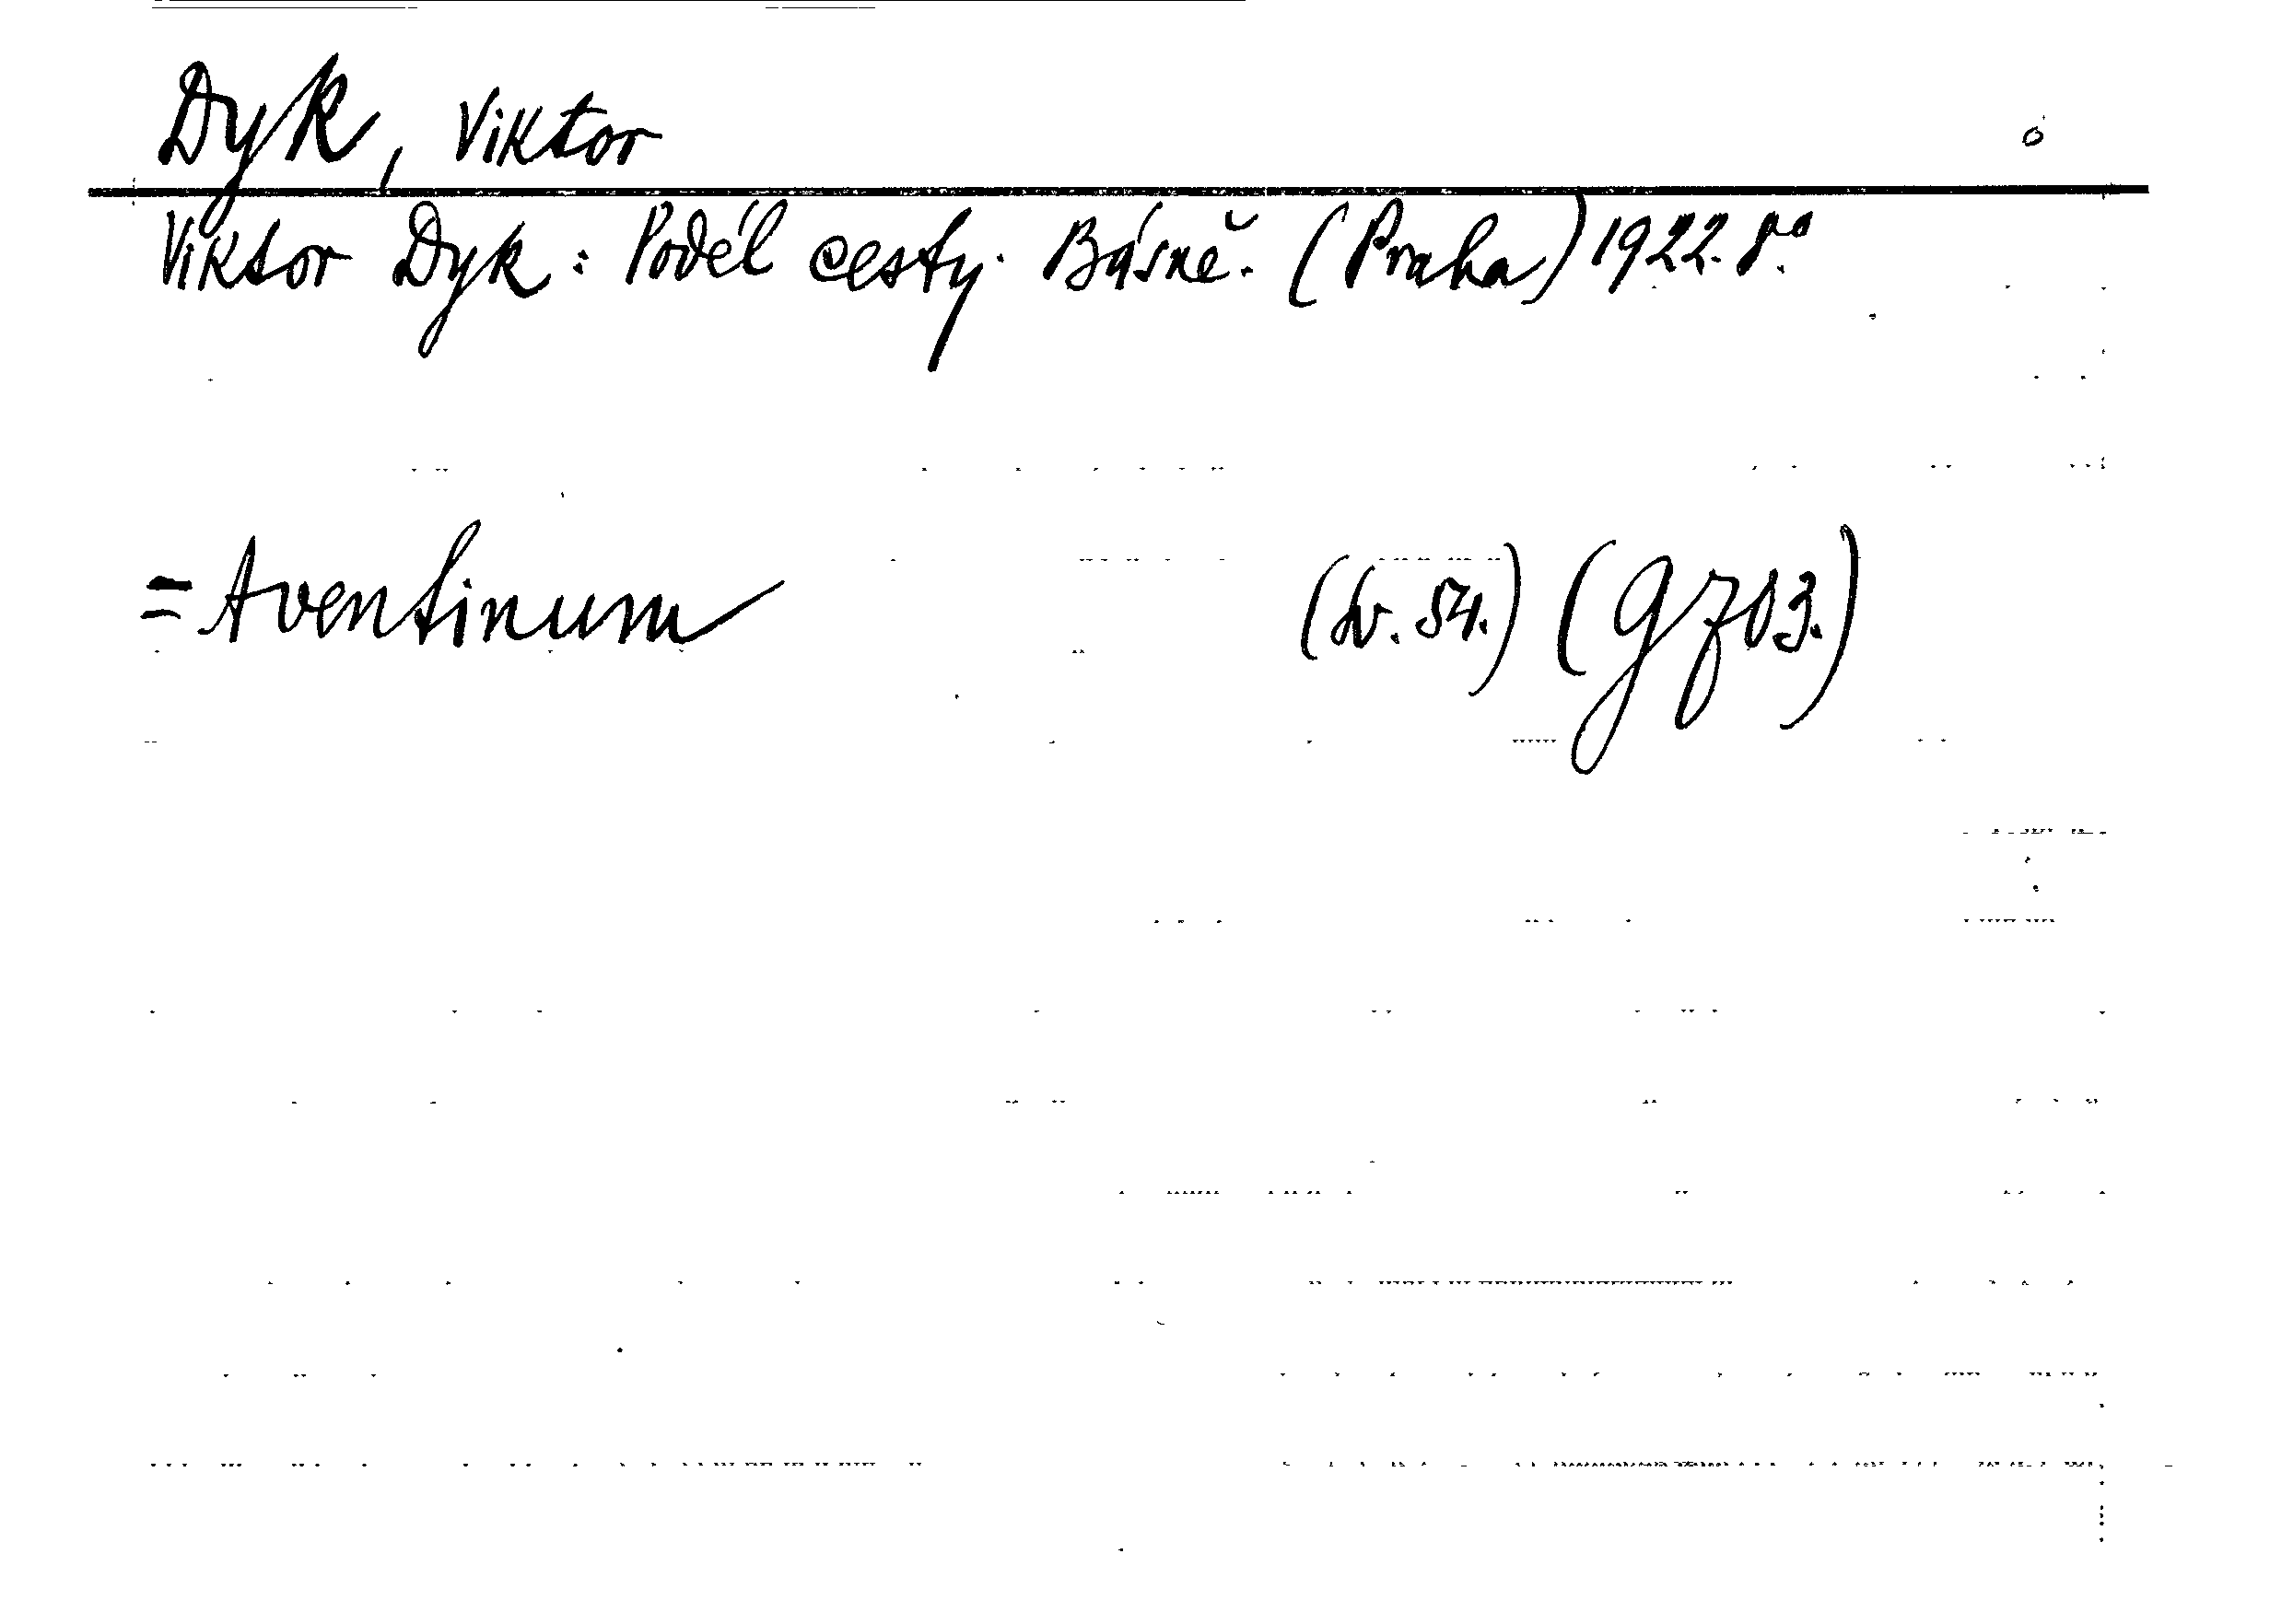 Dyk, Viktor
Viktor Dyk: Poděl cesty. Básně. (Praha) 1922. 8°.
= Aventinum (sv. 54.)